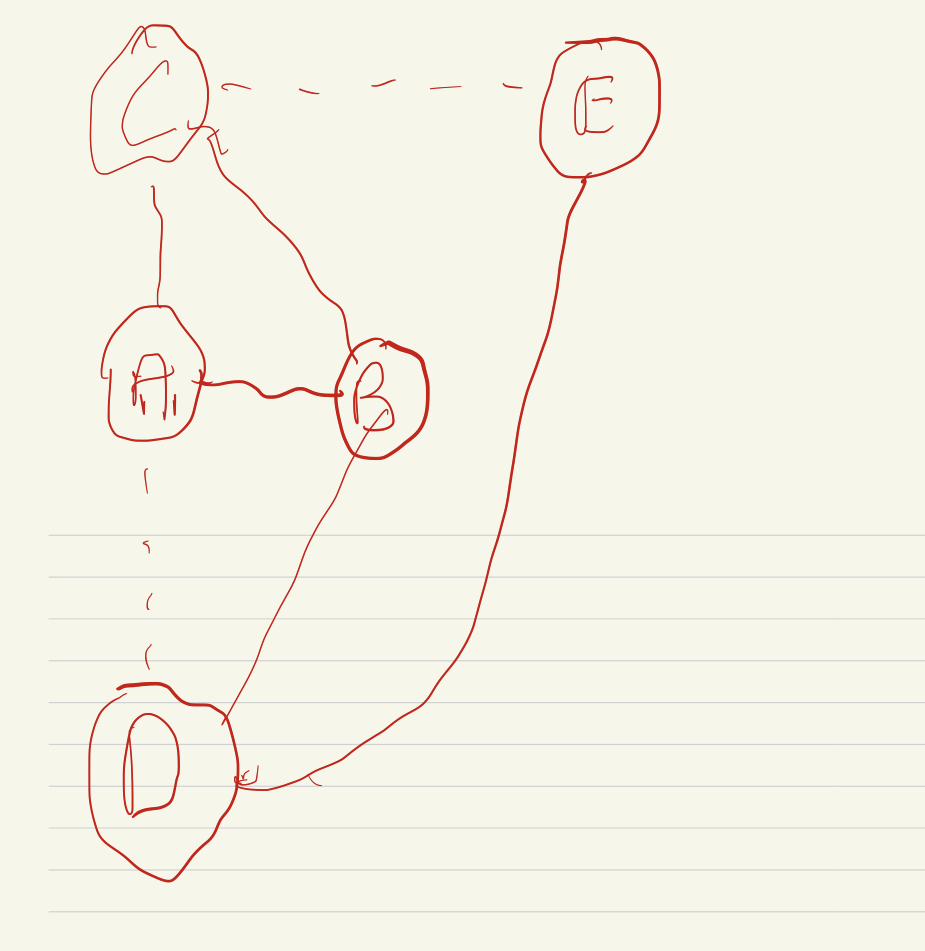 C E
A B
D